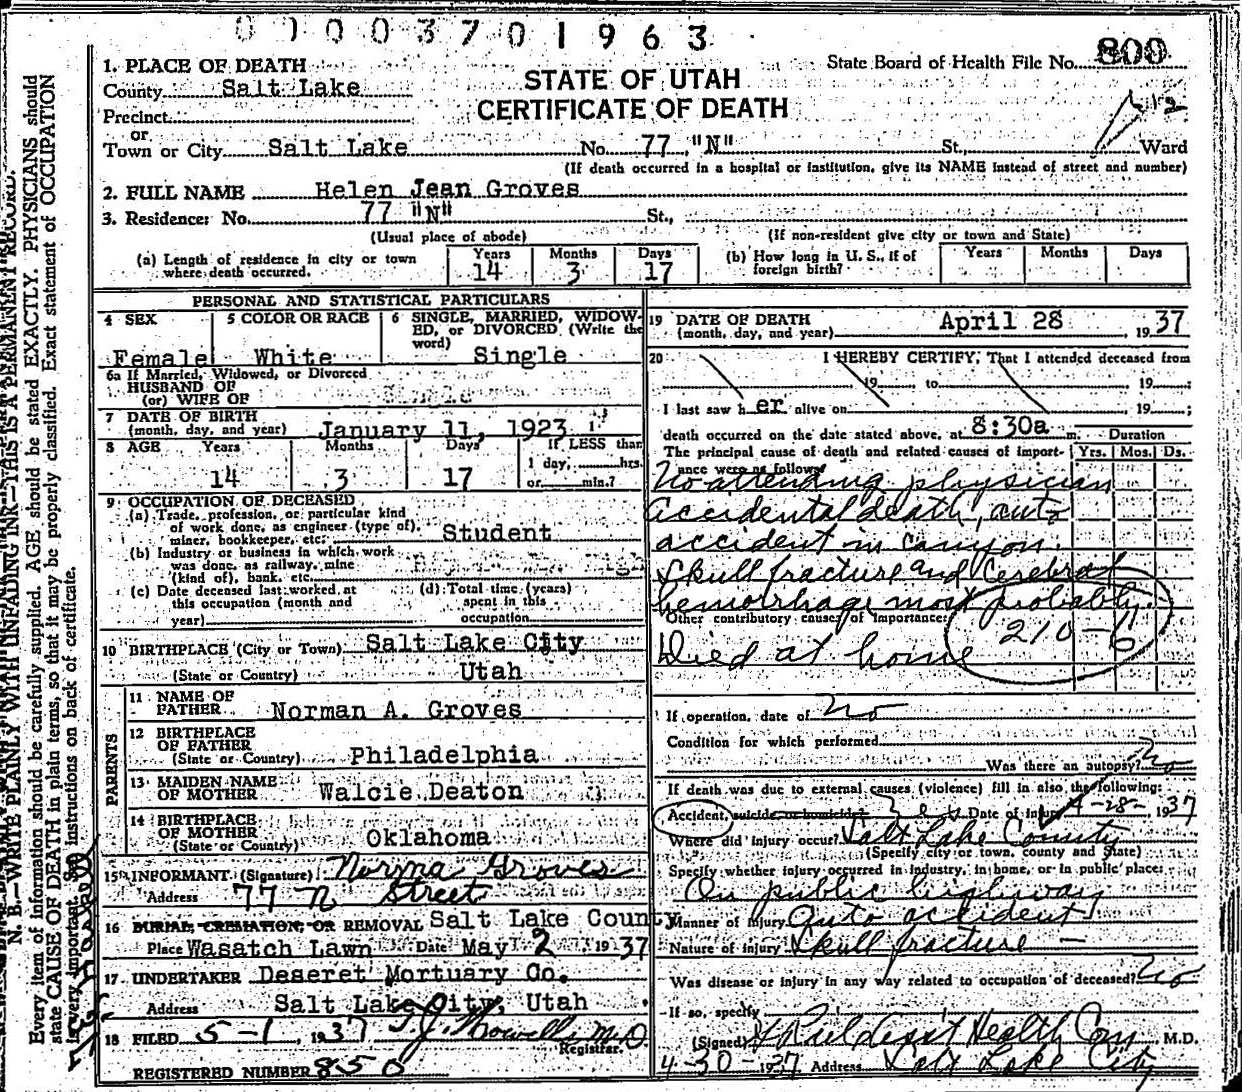 01003701963
1. PLACE OF DEATH
State Board of Health File No. 800
County Salt Lake
STATE OF UTAH
CERTIFICATE OF DEATH
Precinct
or
Town or City Salt Lake No. 77 "N" St., Ward
(If death occurred in a hospital or institution, give its NAME instead of street and number)
2. FULL NAME Helen Jean Groves
3. Residence: No. 77 "N" St.,
(Usual place of abode) (If non-resident give city or town and State)
(a) Length of residence in city or town where death occurred. Years 14 Months 3 Days 17
(b) How long in U. S., if of foreign birth? Years Months Days
PERSONAL AND STATISTICAL PARTICULARS
4 SEX Female
5 COLOR OR RACE White
6 SINGLE, MARRIED, WIDOWED, or DIVORCED (Write the word) Single
6a If Married, Widowed, or Divorced
HUSBAND OF
(or) WIFE OF
7 DATE OF BIRTH
(month, day, and year) January 11, 1923
8 AGE Years 14 Months 3 Days 17 If LESS than 1 day, hrs. or min.?
9 OCCUPATION OF DECEASED
(a) Trade, profession, or particular kind
of work done, as engineer (type of),
miner, bookkeeper, etc. Student
(b) Industry or business in which work
was done, as railway, mine
(kind of), bank, etc.
(c) Date deceased last worked at
this occupation (month and
year)
(d) Total time (years)
spent in this
occupation
10 BIRTHPLACE (City or Town) Salt Lake City
(State or Country) Utah
PARENTS
11 NAME OF
FATHER Norman A. Groves
12 BIRTHPLACE
OF FATHER
(State or Country) Philadelphia
13 MAIDEN NAME
OF MOTHER Walcie Deaton
14 BIRTHPLACE
OF MOTHER
(State or Country) Oklahoma
15 INFORMANT (Signature) Norma Groves
Address 77 N Street
16 BURIAL, CREMATION, OR REMOVAL Salt Lake County
Place Wasatch Lawn Date May 2 1937
17 UNDERTAKER Deseret Mortuary Co.
Address Salt Lake City, Utah
18 FILED 5-1, 1937 T. J. Howells M.D.
Registrar.
REGISTERED NUMBER 850
19 DATE OF DEATH
(month, day, and year) April 28 1937
20 I HEREBY CERTIFY, That I attended deceased from
, 19 to , 19 ;
I last saw her alive on , 19 ;
death occurred on the date stated above, at 8:30a m.
Duration
The principal cause of death and related causes of importance were as follows: Yrs. Mos. Ds.
No attending physician
Accidental death, auto
accident in canyon.
Skull fracture and Cerebral
hemorrhage most probably.
Other contributory causes of importance:
210-6
Died at home
If operation, date of No
Condition for which performed
Was there an autopsy? No
If death was due to external causes (violence) fill in also the following:
Accident, suicide or homicide? Date of injury 4-28- 1937
Where did injury occur? Salt Lake County
(Specify city or town, county and State)
Specify whether injury occurred in industry, in home, or in public place:
On public highway
Manner of Injury Auto accident
Nature of injury Skull fracture -
Was disease or injury in any way related to occupation of deceased? No
If so, specify
(Signed) Health Com M.D.
4-30-1937 Address Salt Lake City
N. B.—WRITE PLAINLY WITH UNFADING INK—THIS IS A PERMANENT RECORD.
Every item of information should be carefully supplied. AGE should be stated EXACTLY. PHYSICIANS should
state CAUSE OF DEATH in plain terms, so that it may be properly classified. Exact statement of OCCUPATION
is very important. See instructions on back of certificate.